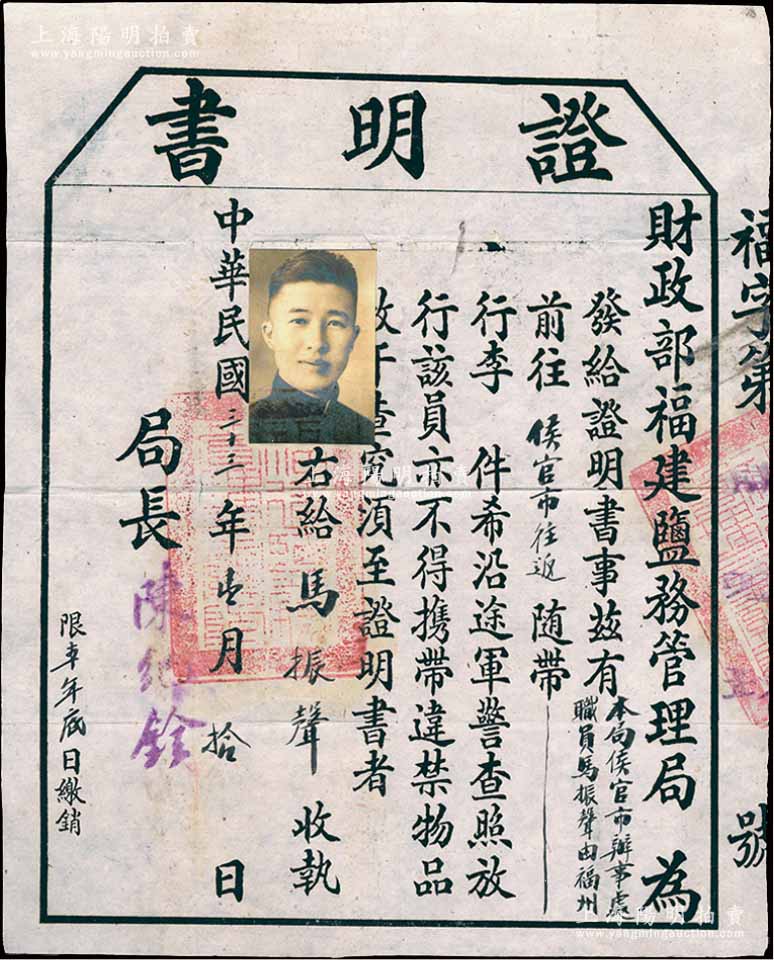 上海陽明拍賣
www.yangmingauction.com
證明書
福字第 號
財政部福建鹽務管理局 為
發給證明書事茲有本局侯官市辦事處
職員馬振聲由福州
前往侯官市往返随帶
行李 件希沿途軍警查照放
行該員亦不得携帶違禁物品
查究須至證明書者
右給馬振聲收執
中華民國三十三年 月拾 日
局長陳 銓
限本年底日繳銷
上海陽明拍賣
www.yangmingauction.com
上海陽明拍賣
www.yangmingauction.com